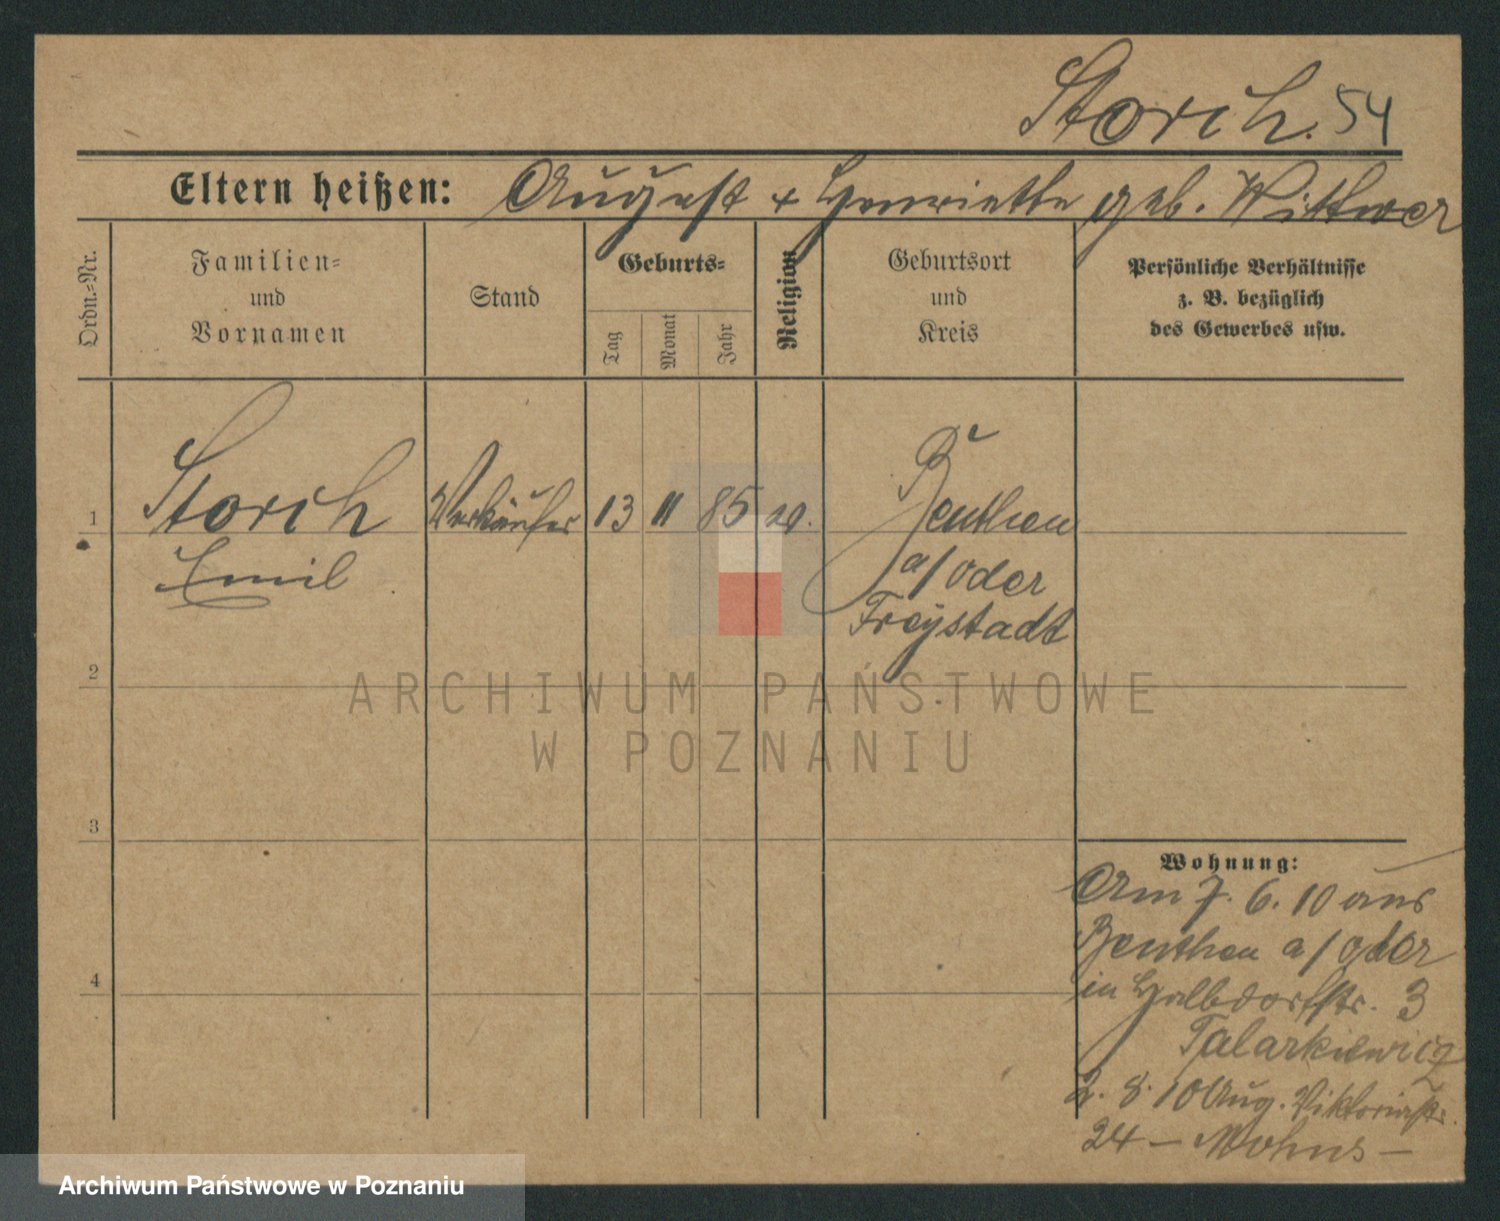 Storch. 54
Eltern heißen: August + Henriette geb. Wittwer
Ordn.-Nr.
Familien-
und
Vornamen
Stand
Geburts-
Tag
Monat
Jahr
Religion
Geburtsort
und
Kreis
Persönliche Verhältnisse
z. B. bezüglich
des Gewerbes usw.
1
Storch
Emil
Verkäufer
13
11
85
Beuthen
a/oder
Freystadt
2
3
4
Wohnung:
Am 7. 6. 10 aus
Beuthen a/oder
in Halbdorfstr. 3
Talarkiewicz
2. 8. 10 Aug. Viktoriastr.
24 – Mohns –
ARCHIWUM PAŃSTWOWE
W POZNANIU
Archiwum Państwowe w Poznaniu